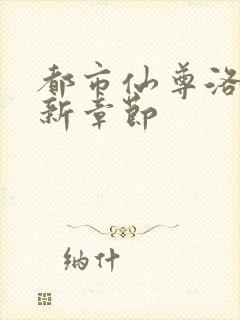 都市仙尊洛
新章节
纳什